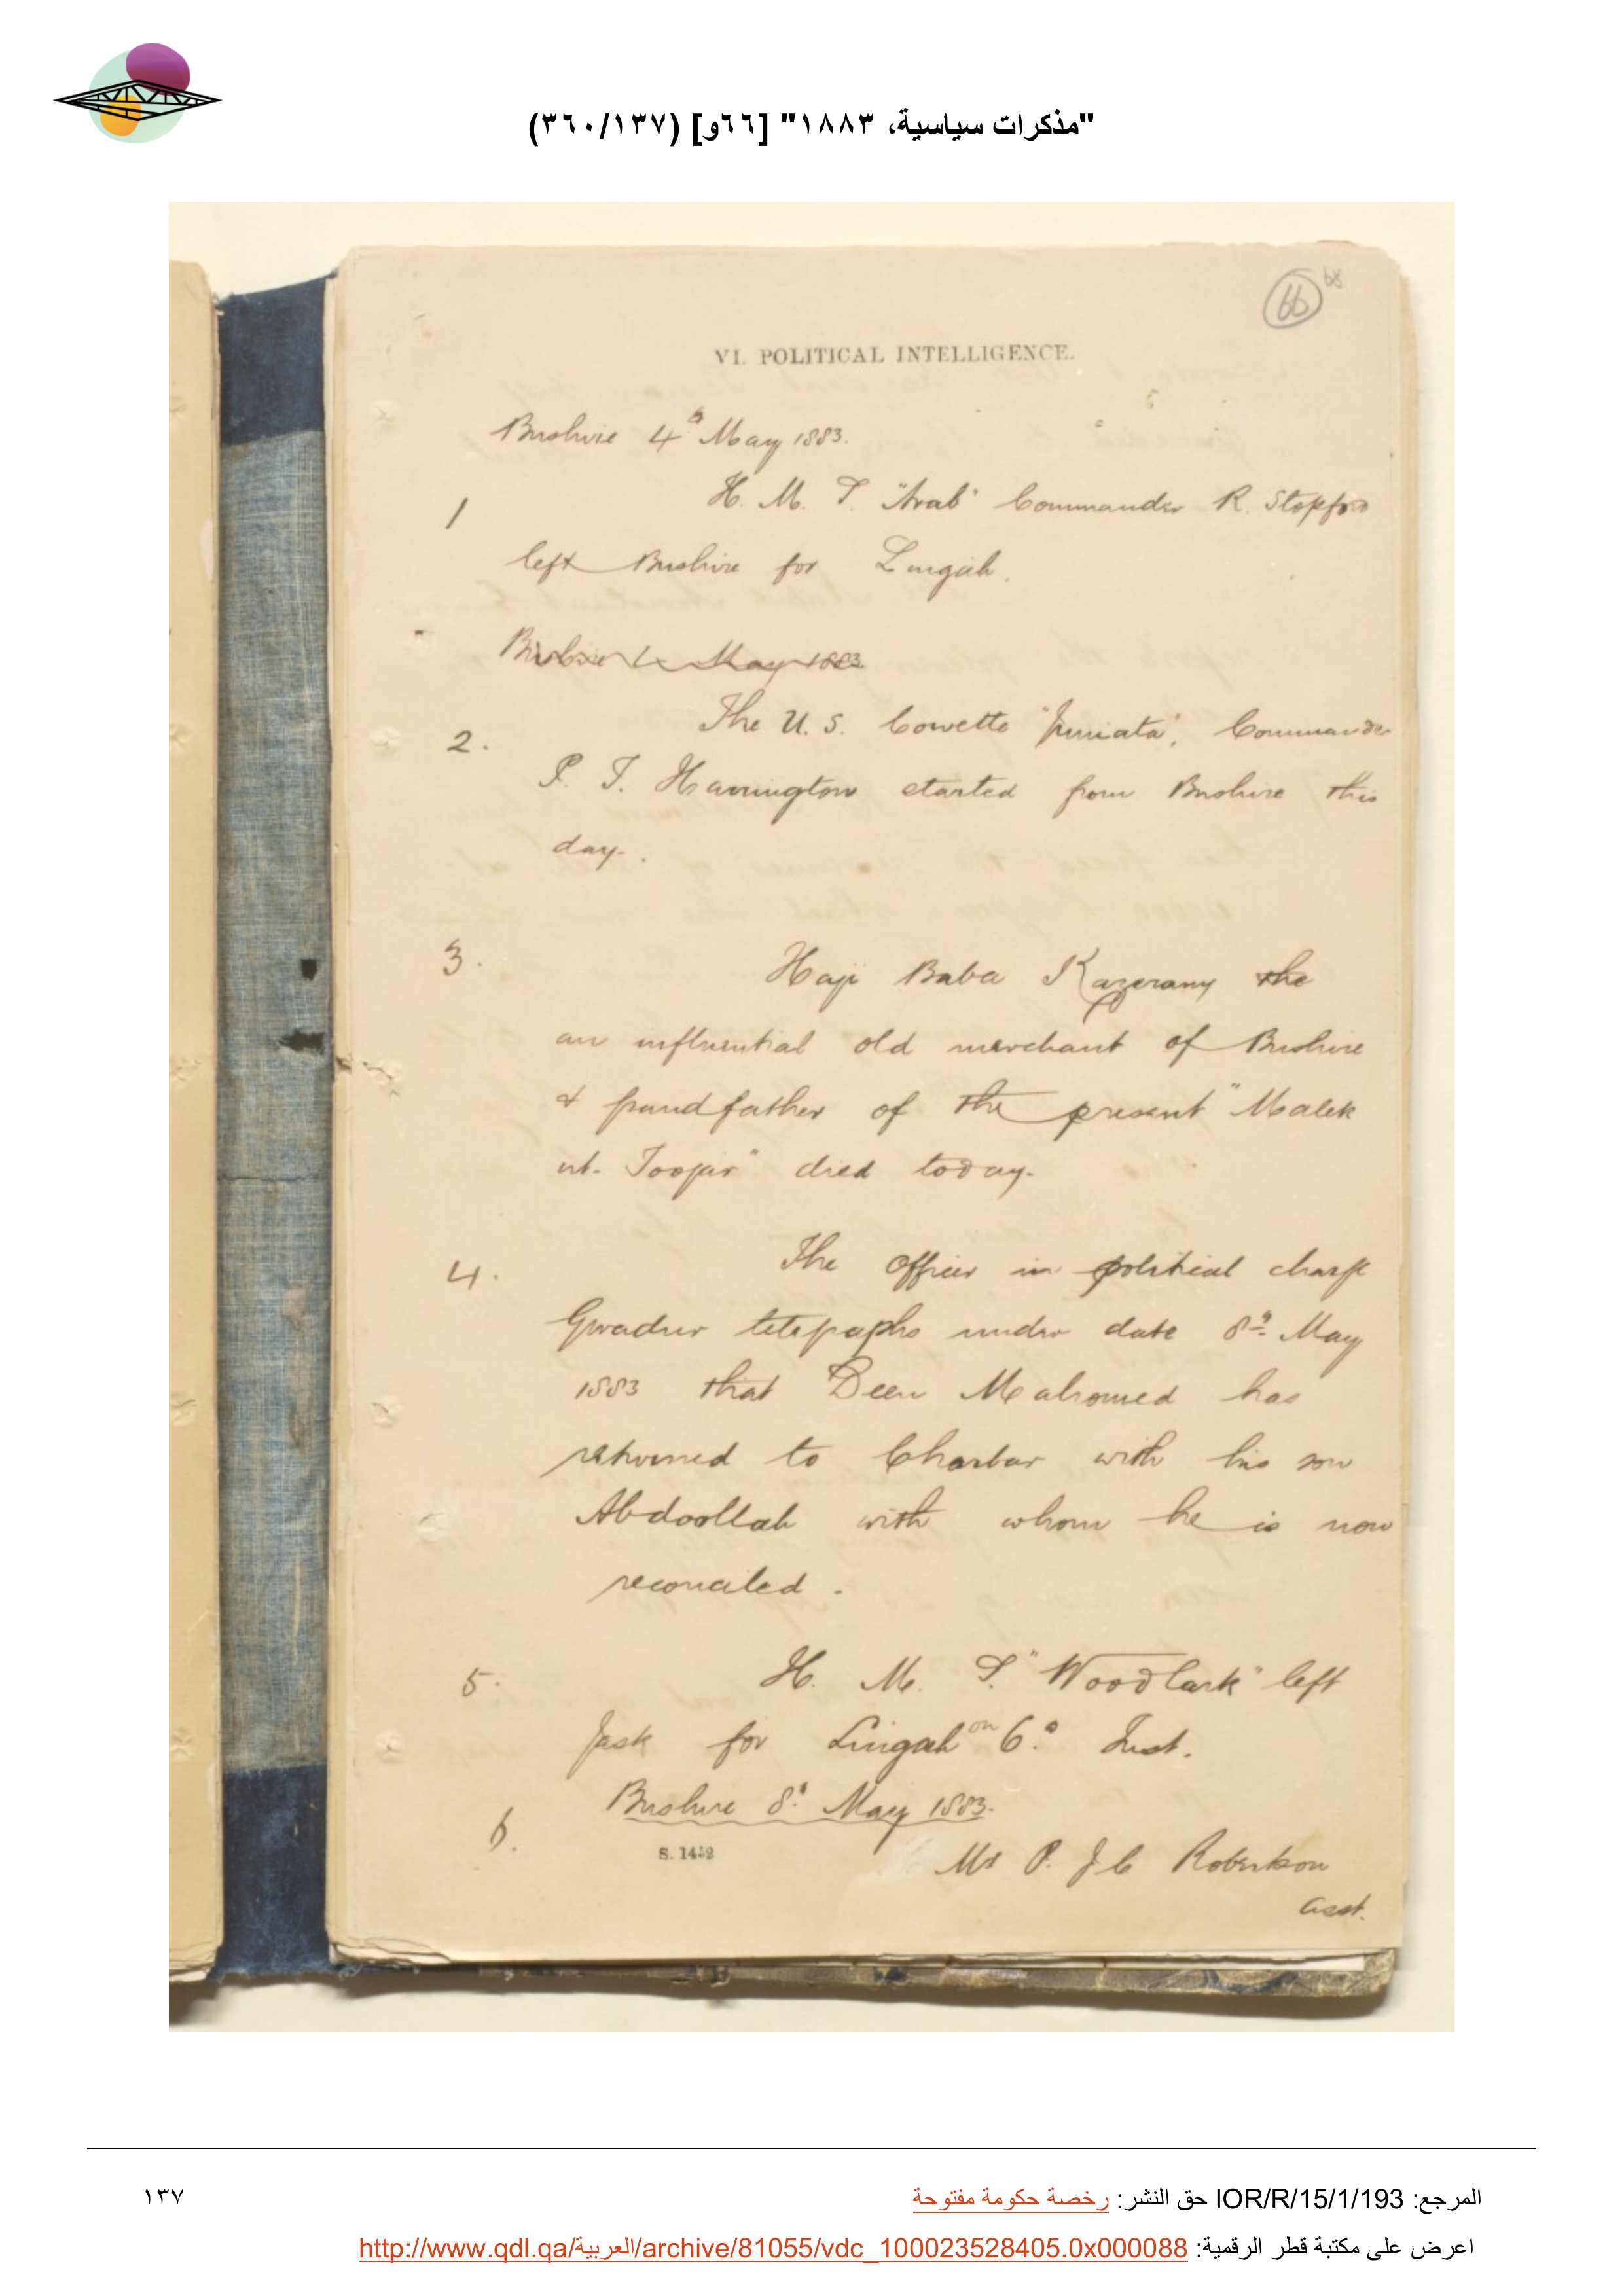 "مذكرات سياسية، ١٨٨٣" [٦٦و] (٣٦٠/١٣٧)
66
68
VI. POLITICAL INTELLIGENCE.
Bushire 4th May 1883.
1 H. M. S. "Arab" Commander R. Stopford
left Bushire for Lingah.
Bushire May 1883
2. The U. S. Corvette "Juniata", Commander
P. F. Harrington started from Bushire this
day.
3. Haji Baba Kazerany the
an influential old merchant of Bushire
& grandfather of the present "Malek
ut. Toojar" died today.
4. The Officer in political charge
Gwadur telegraphs under date 8th May
1883 that Deen Mahomed has
returned to Charbar with his son
Abdoollah with whom he is now
reconciled.
5. H. M. S. "Woodlark" left
Jask for Lingah on 6th Inst.
Bushire 8th May 1883.
6. Mr P. J. C Robertson
S. 1452
Asst.
المرجع: IOR/R/15/1/193 حق النشر: رخصة حكومة مفتوحة
١٣٧
اعرض على مكتبة قطر الرقمية: http://www.qdl.qa/العربية/archive/81055/vdc_100023528405.0x000088